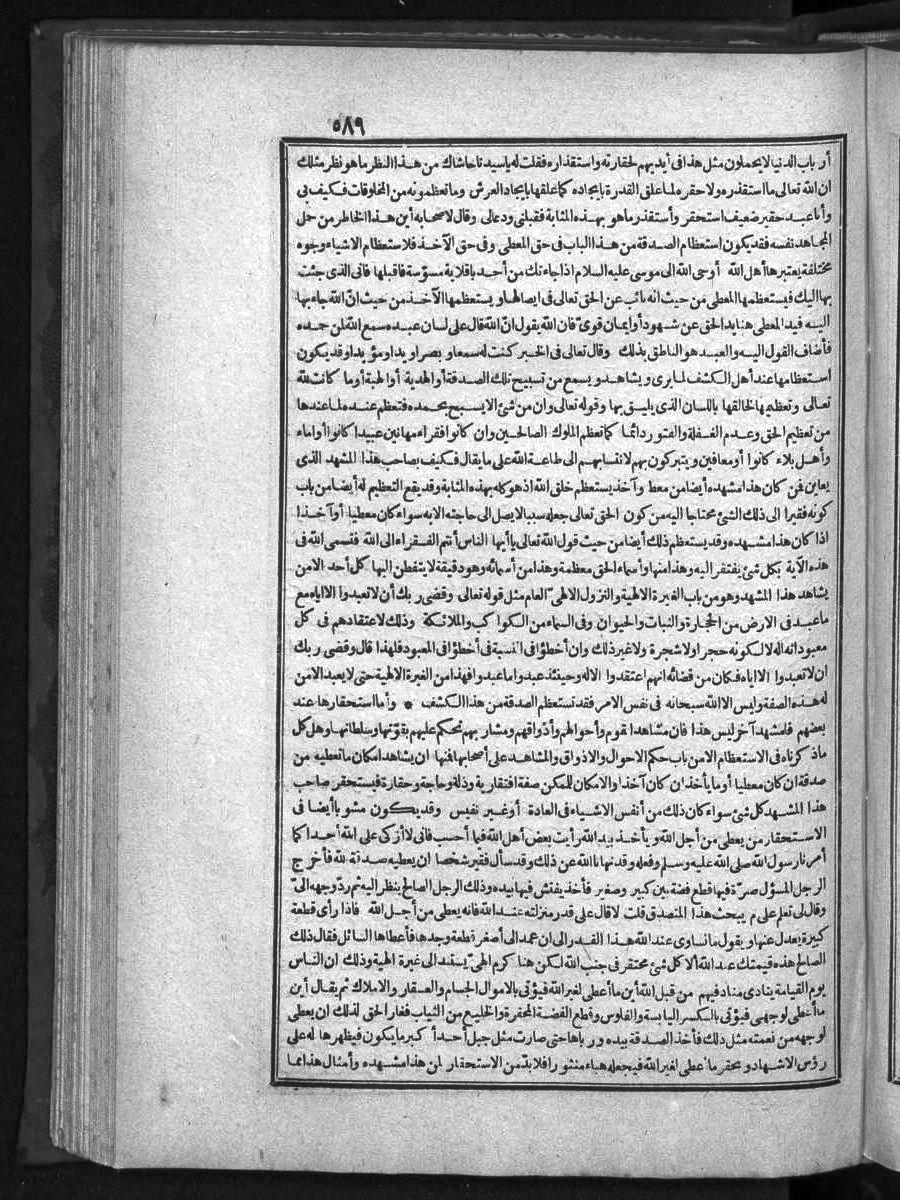 ٥٨٩
أر باب الدنيا لا يحملون مثل هذا فى أيديهم لحقارته واستقذاره فقلت له ياسيد نا حاشاك من هذا النظر ما هو نظر مثلك
ان الله تعالى ما استقذره ولا حقره لما علق القدرة بايجاده كما علقها بايجاد العرش وما تعظمونه من المخلوقات فكيف بى
وأنا عبد حقير ضعيف استحقر وأستقذر ما هو بهذه المثابة فقبلنى ودعالى وقال لاصحابه أين هذا الخاطر من حمل
المجاهد نفسه فقد يكون استعظام الصدقة من هذا الباب فى حق المعطى وفى حق الآخذ فلاستعظام الاشياء وجوه
مختلفة يعتبرها أهل الله أوحى الله الى موسى عليه السلام اذا جاءتك من أحد باقلاية مسوّسة فاقبلها فانى الذى جئت
بها اليك فيستعظمها المعطى من حيث انه نائب عن الحق تعالى فى ايصالها ويستعظمها الآخذ من حيث انّ الله جاء بها
اليه فيد المعطى هنا يد الحق عن شهود أو ايمان قوىّ فان الله يقول انّ الله قال على لسان عبده سمع الله لمن حمده
فأضاف القول اليه والعبد هو الناطق بذلك وقال تعالى فى الخبر كنت له سمعا وبصرا ويدا ومؤيدا وقد يكون
استعظامها عند أهل الكشف لما يرى ويشاهد ويسمع من تسبيح تلك الصدقة أو الهدية أو الهبة أوما كانت لله
تعالى وتعظيمها لخالقها باللسان الذى يليق بها وقوله تعالى وان من شئ الا يسبح بحمده فتعظم عنده لما عندها
من تعظيم الحق وعدم الغفلة والفتور دائما كما تعظم الملوك الصالحين وان كانوا فقراء مهانين عبيدا كانوا أو اماء
وأهل بلاء كانوا أو معافين ويتبركون بهم لانتسابهم الى طاعة الله على ما يقال فكيف بصاحب هذا المشهد الذى
يعاين فن كان هذا مشهده أيضا من معط وآخذ يستعظم خلق الله اذ هو كله بهذه المثابة وقد يقع التعظيم له أيضا من باب
كونه فقيرا الى ذلك الشئ محتاجا اليه من كون الحق تعالى جعله سببا لا يصل الى حاجته الا به سواء كان معطيا أو آخذا
اذا كان هذا مشهده وقد يستعظم ذلك أيضا من حيث قول الله تعالى يا أيها الناس أنتم الفقراء الى الله فتسمى الله فى
هذه الآية بكل شئ يفتقر اليه وهذا منها وأسماء الحق معظمة وهذا من أسمائه وهو دقيقة لا يتفطن اليها كل أحد الا من
يشاهد هذا المشهد وهو من باب الغيرة الالهية والنزول الالهىّ العام مثل قوله تعالى وقضى ربك أن لا تعبدوا الا اياه مع
ما عبد فى الارض من الحجارة والنبات والحيوان وفى السماء من الكواكب والملائكة وذلك لاعتقادهم فى كل
معبود انه اله لا لكونه حجرا ولا شجرة ولا غير ذلك وان أخطؤا فى النسبة فى أخطؤا فى المعبود فلهذا قال وقضى ربك
ان لا تعبدوا الا اياه فكان من قضائه انهم اعتقدوا الاله وحينئذ عبدوا ما عبدوا فهذا من الغيرة الالهية حتى لا يعبد الا من
له هذه الصفة وليس الا الله سبحانه فى نفس الامر فقد تستعظم الصدقة من هذا الكشف * وأما استحقارها عند
بعضهم فلمشهد آخر ليس هذا فان مشاهد القوم وأحوالهم وأذواقهم ومشاربهم تحكم عليهم بقوّتها وسلطانها وهل كل
ماذ كرناه فى الاستعظام الا من باب حكم الاحوال والاذواق والمشاهد على أصحابها فنها ان يشاهد امكان ما تعطيه من
صدقة ان كان معطيا أو ما يأخذ ان كان آخذا والامكان للممكن صفة افتقارية وذلة وحاجة وحقارة فيستحقر صاحب
هذا المشهد كل شئ سواء كان ذلك من أنفس الاشياء فى العادة أو غير نفيس وقد يكون مشوبا أيضا فى
الاستحقار من يعطى من أجل الله و يأخذ بيد الله رأيت بعض أهل الله فيما أحسب فانى لا أزكى على الله أحدا كما
أمرنا رسول الله صلى الله عليه وسلم وفعله وقد نهانا الله عن ذلك وقد سأل فقير شخصا ان يعطيه صدقة لله فأخرج
الرجل المسؤل صرّة فيها قطع فضة بين كبير وصغير فأخذ يفتش فيها بيده وذلك الرجل الصالح ينظر اليه ثم ردّ وجهه الىّ
وقال لى تعلم على م يبحث هذا المتصدّق قلت لا قال على قدر منزلته عند الله فانه يعطى من أجل الله فاذا رأى قطعة
كبيرة يعدل عنها ويقول ما نساوى عند الله هذا القدر الى ان عمد الى أصغر قطعة وجدها فأعطاها السائل فقال ذلك
الصالح هذه قيمتك عند الله ألا كل شئ محتقر فى جنب الله لكن هنا كرم الهىّ يستند الى غيرة الهية وذلك ان الناس
يوم القيامة ينادى مناد فيهم من قبل الله أين ما أعطى لغير الله فيؤتى بالاموال الجسام والعقار والاملاك ثم يقال أين
ما أعطى لوجهى فيؤتى بالكسر اليابسة والفلوس وقطع الفضة المحقرة والخليع من الثياب فغار الحق لذلك ان يعطى
لوجهه من نعمته مثل ذلك فأخذ الصدقة بيده ورباها حتى صارت مثل جبل أحد أكبر ما يكون فيظهرها له على
رؤس الاشهاد ويحقر ما أعطى لغير الله فيجعله هباء منثورا فلا بدّ من الاستحقار لمن هذا مشهده وأمثال هذا مما